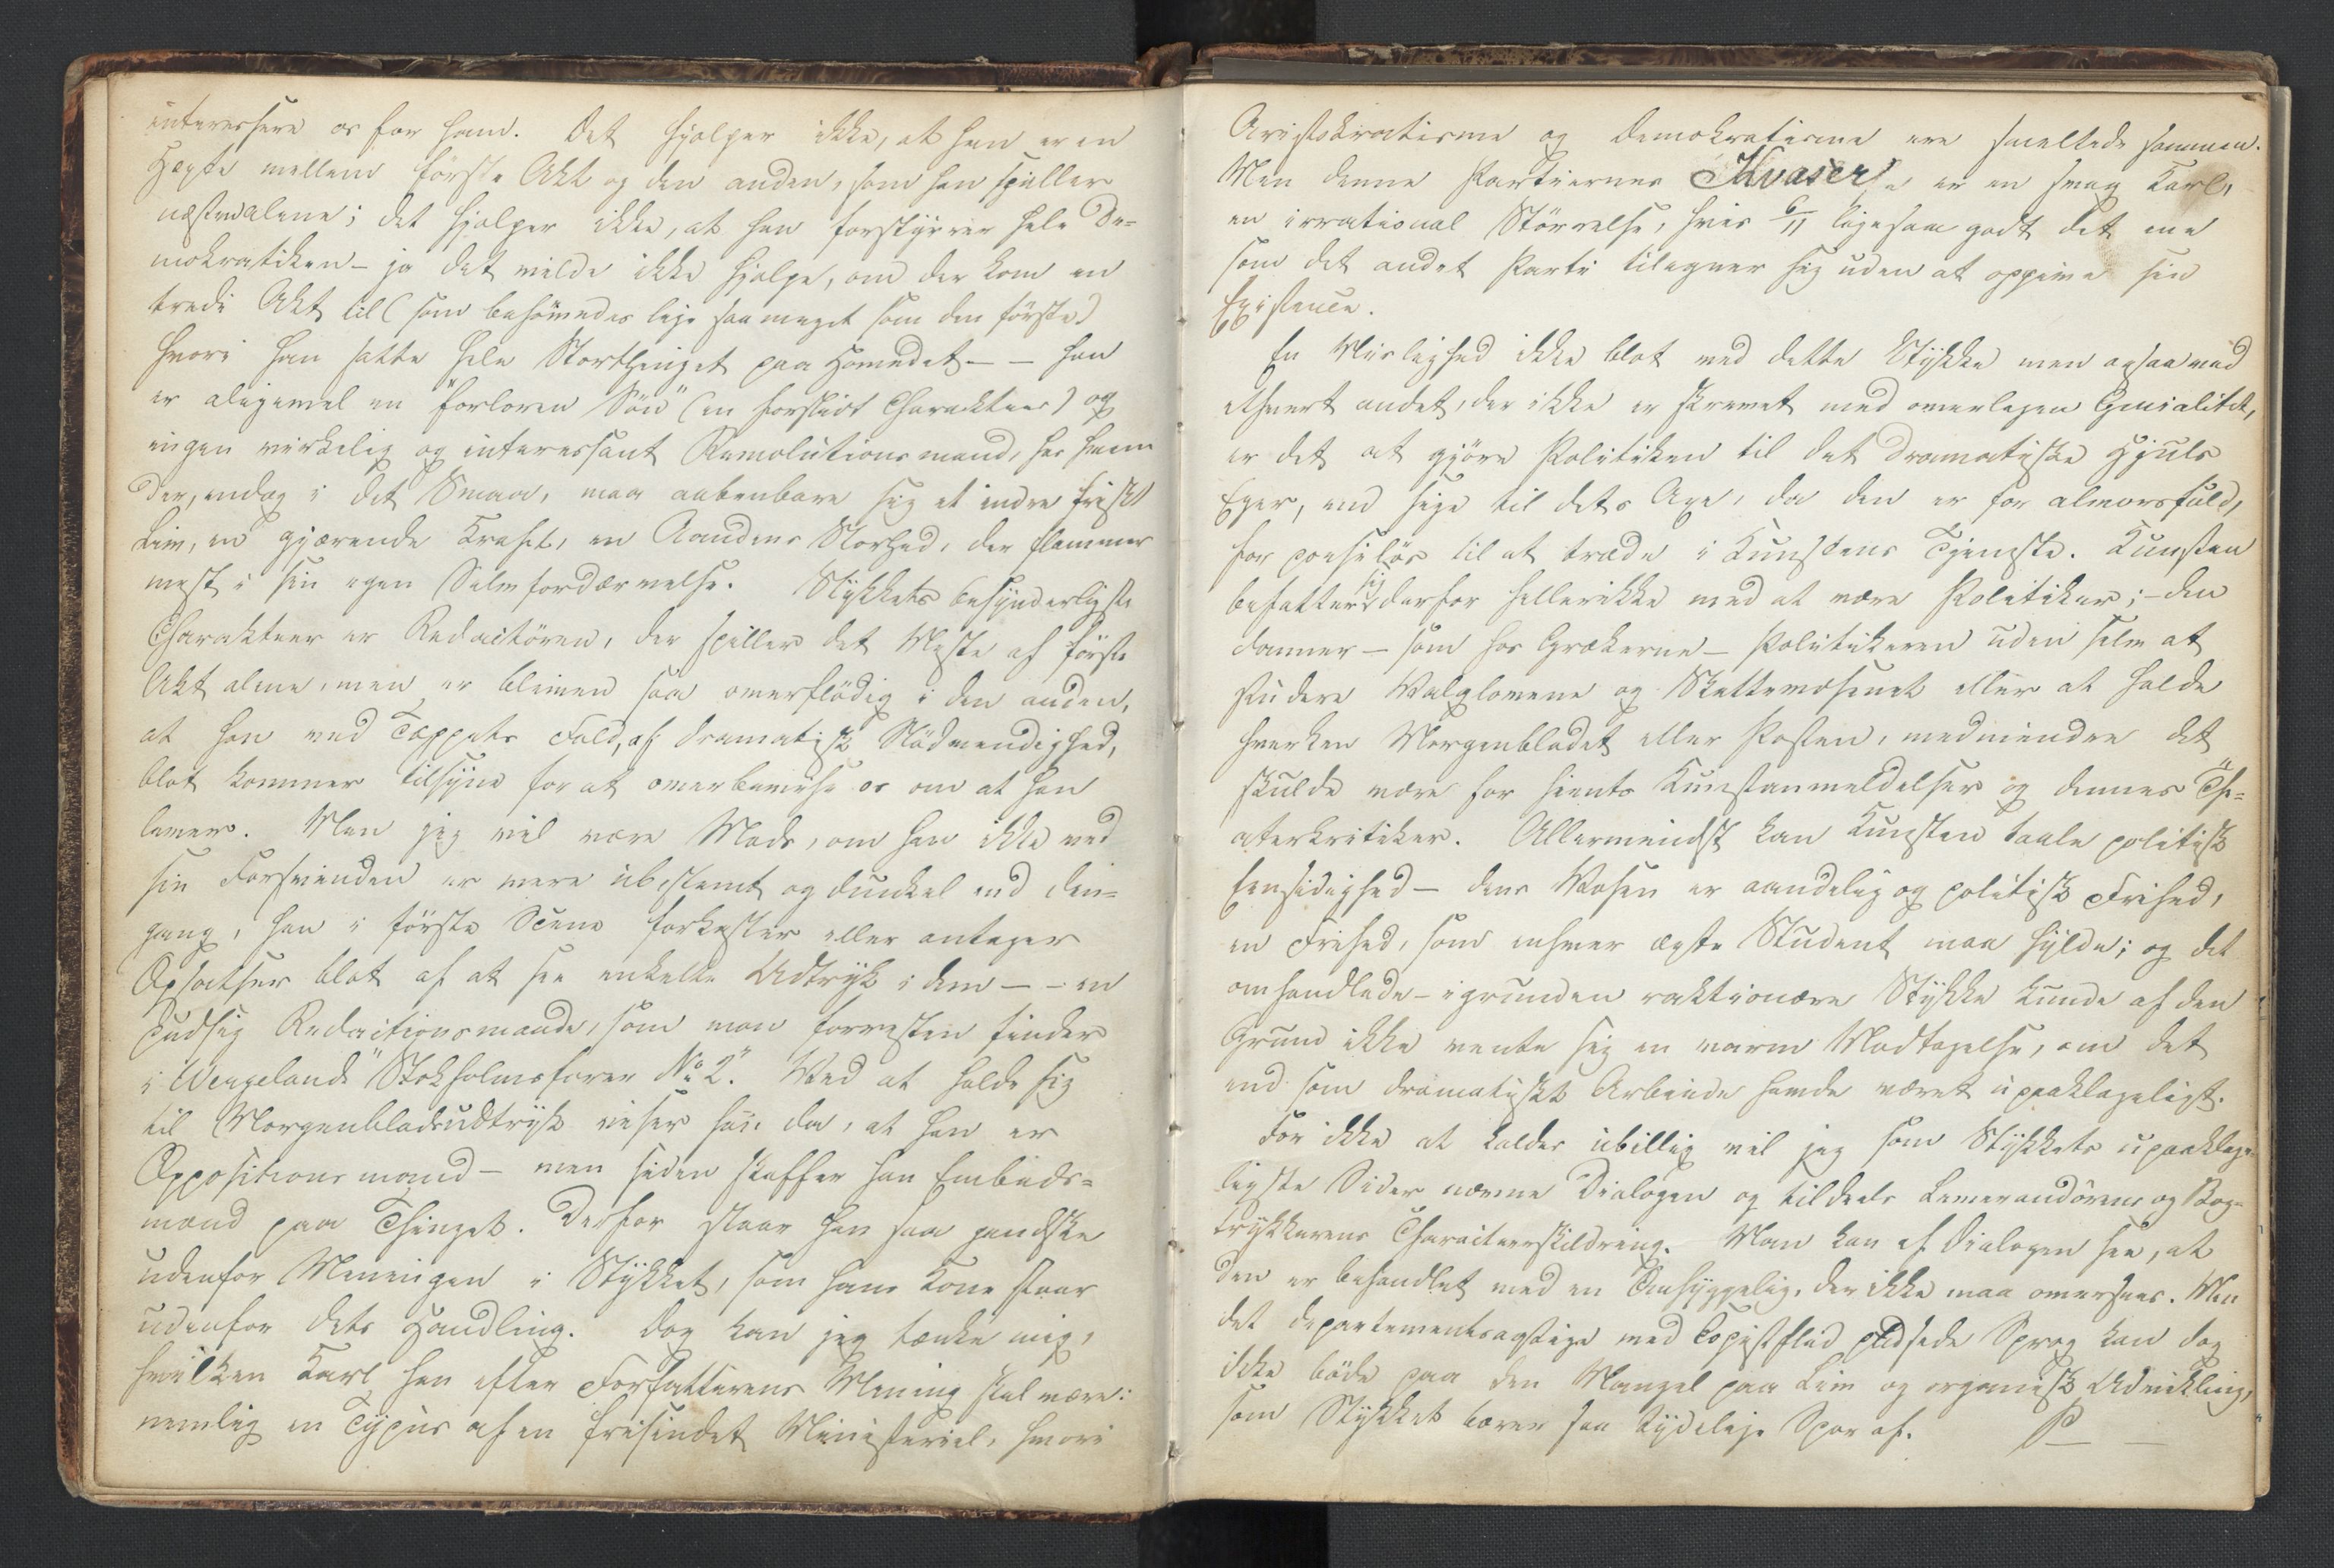 interessere os for ham. Det hjælper ikke, at han er en
Hægte mellem første Akt og den anden, som han spiller
næstenalene; det hjælper ikke, at han forstyrrer hele De-
mokratiken – ja det vilde ikke hjælpe, om der kom en
tredie Akt til (som behövedes lige saameget som den første)
hvori han satte hele Storthinget paa Hovedet – – han
er aligevel en "forloren Sön" (en forslidt Charakteer) og
ingen virkelig og interessant Revolutionsmand, hos hvem
der, endog i det Smaa, maa aabenbare sig et indre friskt
Liv, en gjærende Kraft, en Aandens Storhed, der flammer
mest i sin egen Selvfordærvelse. Stykkets besynderligste
Charakteer er Redactören, der spiller det Meste af første
Akt alene, men er bleven saa overflödig i den anden,
at han ved Tæppets Fald, af dramatisk Nödvendighed,
blot kommer tilsyne for at overbevise os om at han
lever. Men jeg vil være Mads, om han ikke ved
sin Forsvinden er mere ubestemt og dunkel end den-
gang, han i første Scene forkaster eller antager
Opsatser blot af at see enkelte Udtryk i dem – – en
pudsig Redactionsmaade, som man forresten finder
i Wergelands "Stokholmsfarer No 2". Ved at holde sig
til Morgenbladsudtryk viser han da, at han er
Oppositionsmand – men siden skaffer han Embeds-
mænd paa Thinget. Derfor staar han saa gandske
udenfor Meningen i Stykket, som hans Kone staar
udenfor dets Handling. Dog kan jeg tænke mig,
hvilken Karl han efter Forfatterens Mening skal være:
nemlig en Typus af en frisindet Ministeriel, hvori
Aristokratisme og Demokratisme ere smeltede sammen.
Men denne Partiernes Kvaser er en svag Karl,
en irrational Störrelse, hvis 6/11 ligesaa godt det ene
som det andet Parti tilegner sig uden at oppeve sin
Existence.
En Mislighed ikke blot med dette Stykke men ogsaa med
ethvert andet, der ikke er skrevet med overlegen Genialitet,
er det at gjöre Politiken til det dramatiske Hjuls
Eger, end sige til dets Axe, da den er for alvorsfuld,
for poesilös til at træde i Kunstens Tjeneste. Kunsten
befatter sig derfor hellerikke med at være Politiker; – den
danner – som hos Grækerne – Politikeren uden selv at
studere Valglovene og Skattevæsenet eller at holde
hverken Morgenbladet eller Posten, medmindre det
skulde være for hiints Kunstanmeldelser og dennes "The-
aterkritiker. Allermindst kan Kunsten taale politisk
Eensidighed – dens Væsen er aandelig og politisk Frihed,
en Frihed, som enhver ægte Student maa hylde; og det
omhandlede – igrunden reaktionære Stykke kunde af den
Grund ikke vente sig en varm Modtagelse, om det
end som dramatiskt Arbeide havde været upaaklageligt.
For ikke at kaldes ubillig vil jeg som Stykkets upaaklage-
ligste Sider nævne Dialogen og tildeels Leverandörens og Bog-
trykkerens Charakteerskildring. Man kan af Dialogen see, at
den er behandlet med en Omhyggelig, der ikke maa oversees. Men
det departementsagtige med Copistflid pudsede Sprog kan dog
ikke böde paa den Mangel paa Liv og organisk Udvikling,
som Stykket bærer saa tydelige Spor af. P – –